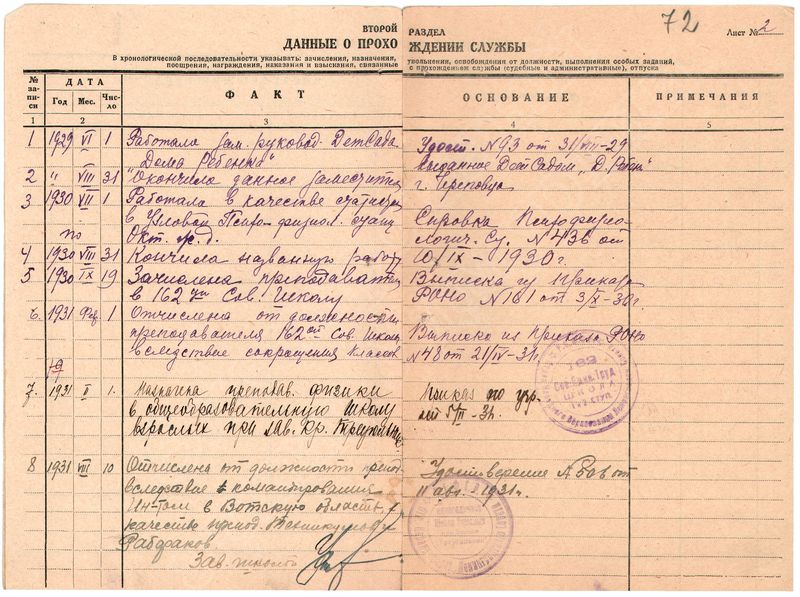 72
ВТОРОЙ РАЗДЕЛ
Лист № 2
ДАННЫЕ О ПРОХОЖДЕНИИ СЛУЖБЫ
В хронологической последовательности указывать: зачисления, назначения, увольнения, освобождения от должности, выполнения особых заданий,
поощрения, награждения, наказания и взыскания, связанные с прохождением службы (судебные и административные), отпуска
№ записи ДАТА Год Мес. Число ФАКТ ОСНОВАНИЕ ПРИМЕЧАНИЯ
1 2 3 4 5
1 1929 VI 1 Работала зам. руковод. ДетСада
Дома Ребенка"
Удост. № 93 от 31/VIII-29
выданное ДетСадом „Д. Ребен"
г. Череповца
2 " VIII 31 Окончила данное
3 1930 VII 1 Работала в качестве
в Узловой Психо-физиол.
Окт. ж.д.
по
Справка Психофизиологич. № 436 от
10/IX-1930 г.
4 1930 VIII 31 Кончила названную работу
5 1930 IX 19 Зачислена преподават
в 162 ую Сов. Школу
Выписка из Приказа
РОНО № 181 от 3/X-30 г.
6 1931 Фев. 1 Отчислена от должности
преподавателя 162ой Сов. Школы
вследствие сокращения классов
Выписка из Приказа РОНО
№ 48 от 21/IV-31 г.
7. 1931 II 1. Назначена преподав. физики
в общеобразовательную школу
взрослых при зав.
Приказ по
от 5/II-31 г.
8 1931 VIII 10 Отчислена от должности преп
вследствие командирования
Ин-том в Вотскую область в
качестве
Рабфаков
Зав. школой
Удостоверение от
11 авг. 1931 г.